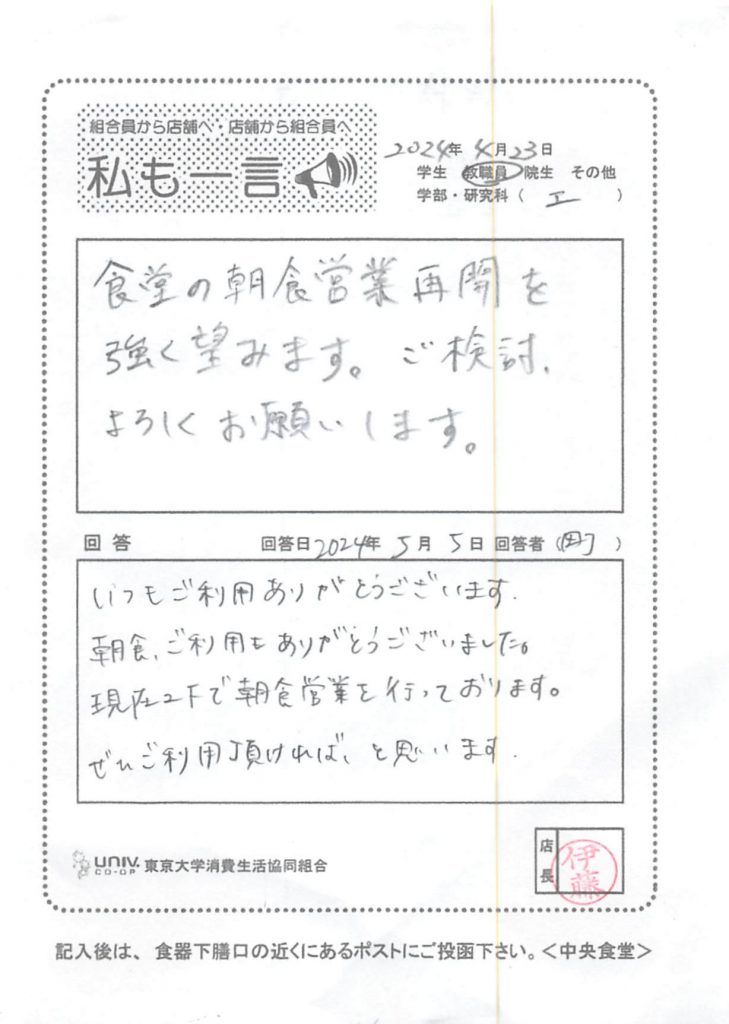 組合員から店舗へ・店舗から組合員へ
私も一言
2024年 4月23日
学生 教職員 院生 その他
学部・研究科（ 工 ）
食堂の朝食営業再開を
強く望みます。ご検討、
よろしくお願いします。
回答 回答日2024年 5月 5日 回答者（町）
いつもご利用ありがとうございます.
朝食、ご利用もありがとうございました。
現在2Fで朝食営業を行っております。
ぜひご利用頂ければ、と思います.
UNIV. CO-OP 東京大学消費生活協同組合
店長 伊藤
記入後は、食器下膳口の近くにあるポストにご投函下さい。＜中央食堂＞